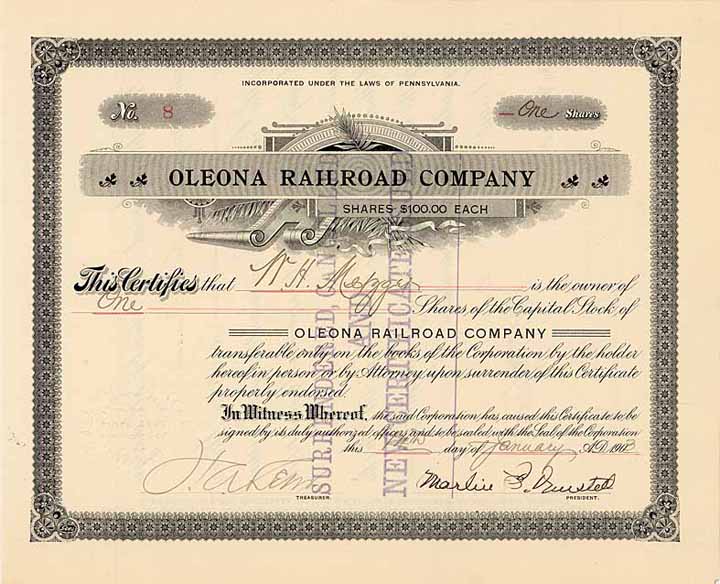 INCORPORATED UNDER THE LAWS OF PENNSYLVANIA.
No. 8
One Shares
OLEONA RAILROAD COMPANY
SHARES $100.00 EACH
This Certifies that W. H. is the owner of
One Shares of the Capital Stock of
OLEONA RAILROAD COMPANY
transferable only on the books of the Corporation by the holder
hereof in person or by Attorney upon surrender of this Certificate
properly endorsed.
In Witness Whereof, the said Corporation has caused this Certificate to be
signed by its duly authorized officers and to be sealed with the Seal of the Corporation
this day of January A.D. 190
TREASURER.
PRESIDENT.
SURRENDERED CANCELLED
AND
NEW CERTIFICATE